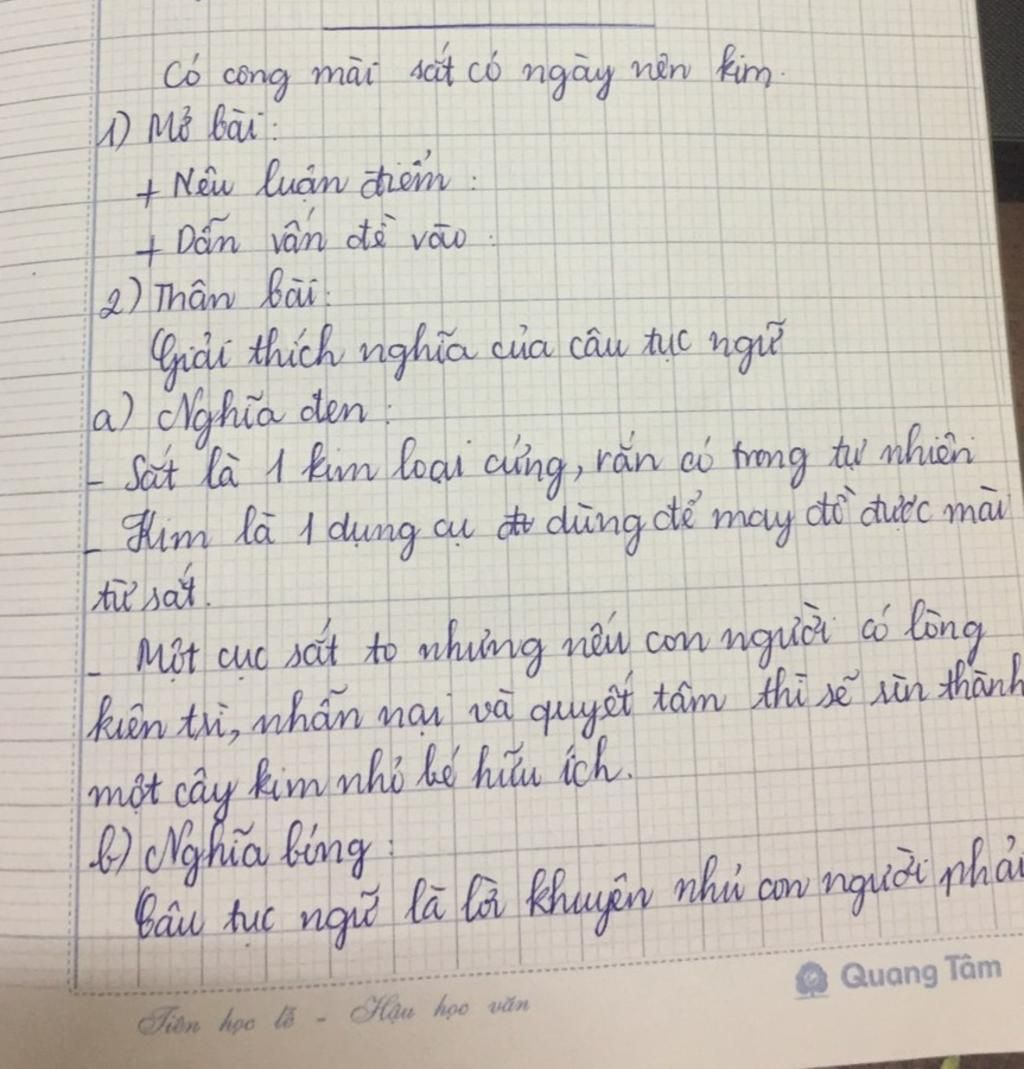 Có công mài sắt có ngày nên kim.
1) Mở bài:
+ Nêu luận điểm:
+ Dẫn vấn đề vào:
2) Thân bài:
Giải thích nghĩa của câu tục ngữ
a) Nghĩa đen:
- Sắt là 1 kim loại cứng, rắn có trong tự nhiên
- Kim là 1 dụng cụ dùng để may đồ được mài
từ sắt.
- Một cục sắt to nhưng nếu con người có lòng
kiên trì, nhẫn nại và quyết tâm thì sẽ rèn thành
một cây kim nhỏ bé hữu ích.
b) Nghĩa bóng:
Câu tục ngữ là lời khuyên nhủ con người phải
Quang Tâm
Tiên học lễ - Hậu học văn